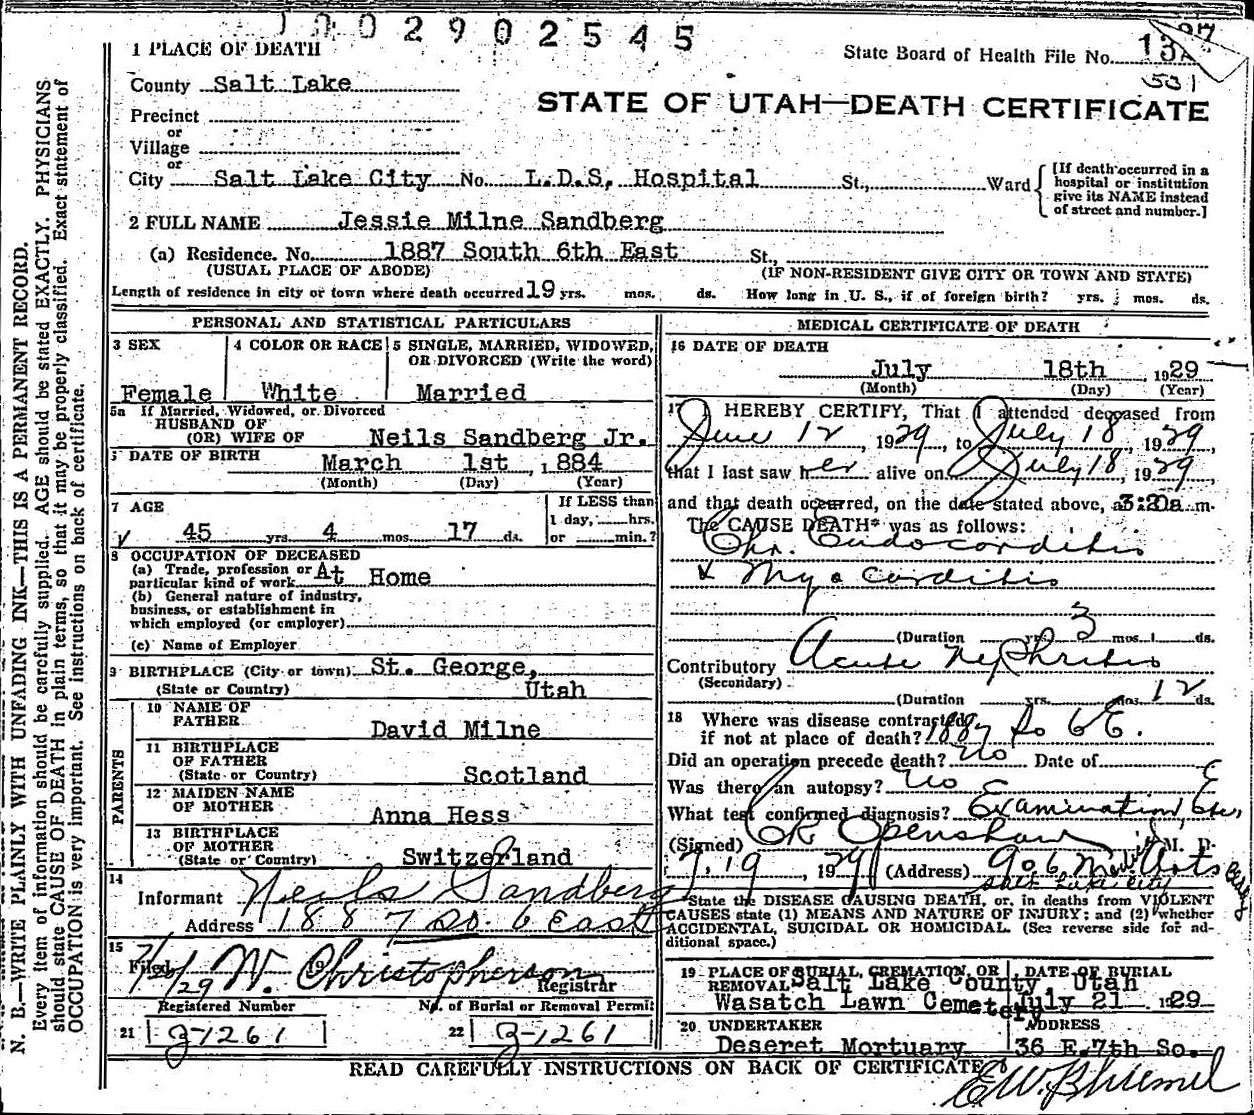 0 0 2 9 0 2 5 4 5
1 PLACE OF DEATH
State Board of Health File No.
County Salt Lake
531
STATE OF UTAH—DEATH CERTIFICATE
Precinct
or
Village
or
City Salt Lake City No. L.D.S. Hospital St., Ward
[If death occurred in a
hospital or institution
give its NAME instead
of street and number.]
2 FULL NAME Jessie Milne Sandberg
(a) Residence. No. 1887 South 6th East St.,
(USUAL PLACE OF ABODE) (IF NON-RESIDENT GIVE CITY OR TOWN AND STATE)
Length of residence in city or town where death occurred 19 yrs. mos. ds. How long in U. S., if of foreign birth? yrs. mos. ds.
PERSONAL AND STATISTICAL PARTICULARS
3 SEX
Female
4 COLOR OR RACE
White
5 SINGLE, MARRIED, WIDOWED,
OR DIVORCED (Write the word)
Married
5a If Married, Widowed, or Divorced
HUSBAND OF
(OR) WIFE OF Neils Sandberg Jr.
DATE OF BIRTH
March 1st, 1884
(Month) (Day) (Year)
7 AGE
45 yrs. 4 mos. 17 ds.
If LESS than
1 day, hrs.
or min.?
8 OCCUPATION OF DECEASED
(a) Trade, profession or
particular kind of work At Home
(b) General nature of industry,
business, or establishment in
which employed (or employer)
(c) Name of Employer
9 BIRTHPLACE (City or town) St. George,
(State or Country) Utah
PARENTS
10 NAME OF
FATHER David Milne
11 BIRTHPLACE
OF FATHER
(State or Country) Scotland
12 MAIDEN NAME
OF MOTHER Anna Hess
13 BIRTHPLACE
OF MOTHER
(State or Country) Switzerland
14
Informant Neils Sandberg
Address 1887 So 6 East
15
Filed 7/ /29 W. Christopherson
Registrar
Registered Number No. of Burial or Removal Permit
21 J-1261 22 J-1261
MEDICAL CERTIFICATE OF DEATH
16 DATE OF DEATH
July 18th, 1929
(Month) (Day) (Year)
17 I HEREBY CERTIFY, That I attended deceased from
June 12, 1929, to July 18, 1929,
that I last saw her alive on July 18, 1929,
and that death occurred, on the date stated above, at 3:20a.m.
The CAUSE DEATH* was as follows:
Chr. Endocorditis
& Myocorditis
(Duration yrs. 3 mos. ds.
Contributory Acute Nephritis
(Secondary)
(Duration yrs. mos. 12 ds.
18 Where was disease contracted
if not at place of death? 1887 So 6 E.
Did an operation precede death? No Date of
Was there an autopsy? No
What test confirmed diagnosis? Examination, Etc,
(Signed) Openshaw, M. D.
7.19, 1929 (Address) 906 Arts
Salt Lake City
State the DISEASE CAUSING DEATH, or, in deaths from VIOLENT
CAUSES state (1) MEANS AND NATURE OF INJURY; and (2) whether
ACCIDENTAL, SUICIDAL OR HOMICIDAL. (See reverse side for ad-
ditional space.)
19 PLACE OF BURIAL, CREMATION, OR
REMOVAL Salt Lake County, Utah
Wasatch Lawn Cemetery
DATE OF BURIAL
July 21 1929
20 UNDERTAKER
Deseret Mortuary
ADDRESS
36 E.7th So.
READ CAREFULLY INSTRUCTIONS ON BACK OF CERTIFICATE
N. B.—WRITE PLAINLY WITH UNFADING INK—THIS IS A PERMANENT RECORD.
Every item of information should be carefully supplied. AGE should be stated EXACTLY. PHYSICIANS
should state CAUSE OF DEATH in plain terms, so that it may be properly classified. Exact statement of
OCCUPATION is very important. See instructions on back of certificate.